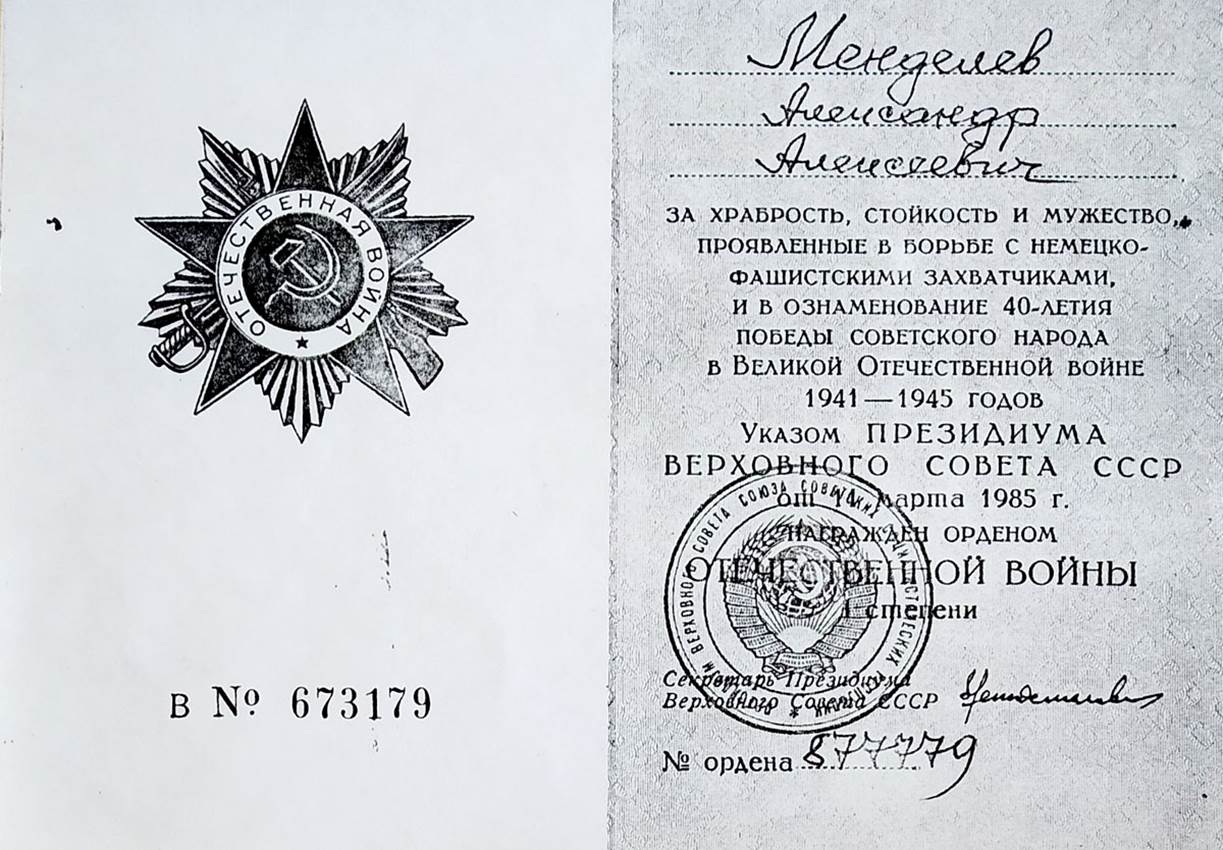 ОТЕЧЕСТВЕННАЯ ВОЙНА
В № 673179
Менделев
Александр
Алексеевич
ЗА ХРАБРОСТЬ, СТОЙКОСТЬ И МУЖЕСТВО,
ПРОЯВЛЕННЫЕ В БОРЬБЕ С НЕМЕЦКО-
ФАШИСТСКИМИ ЗАХВАТЧИКАМИ,
И В ОЗНАМЕНОВАНИЕ 40-ЛЕТИЯ
ПОБЕДЫ СОВЕТСКОГО НАРОДА
В ВЕЛИКОЙ ОТЕЧЕСТВЕННОЙ ВОЙНЕ
1941—1945 ГОДОВ
УКАЗОМ ПРЕЗИДИУМА
ВЕРХОВНОГО СОВЕТА СССР
от марта 1985 г.
НАГРАЖДЕН ОРДЕНОМ
ОТЕЧЕСТВЕННОЙ ВОЙНЫ
I степени
ПРЕЗИДИУМ ВЕРХОВНОГО СОВЕТА СОЮЗА СОВЕТСКИХ СОЦИАЛИСТИЧЕСКИХ РЕСПУБЛИК
Секретарь Президиума
Верховного Совета СССР
№ ордена 877779